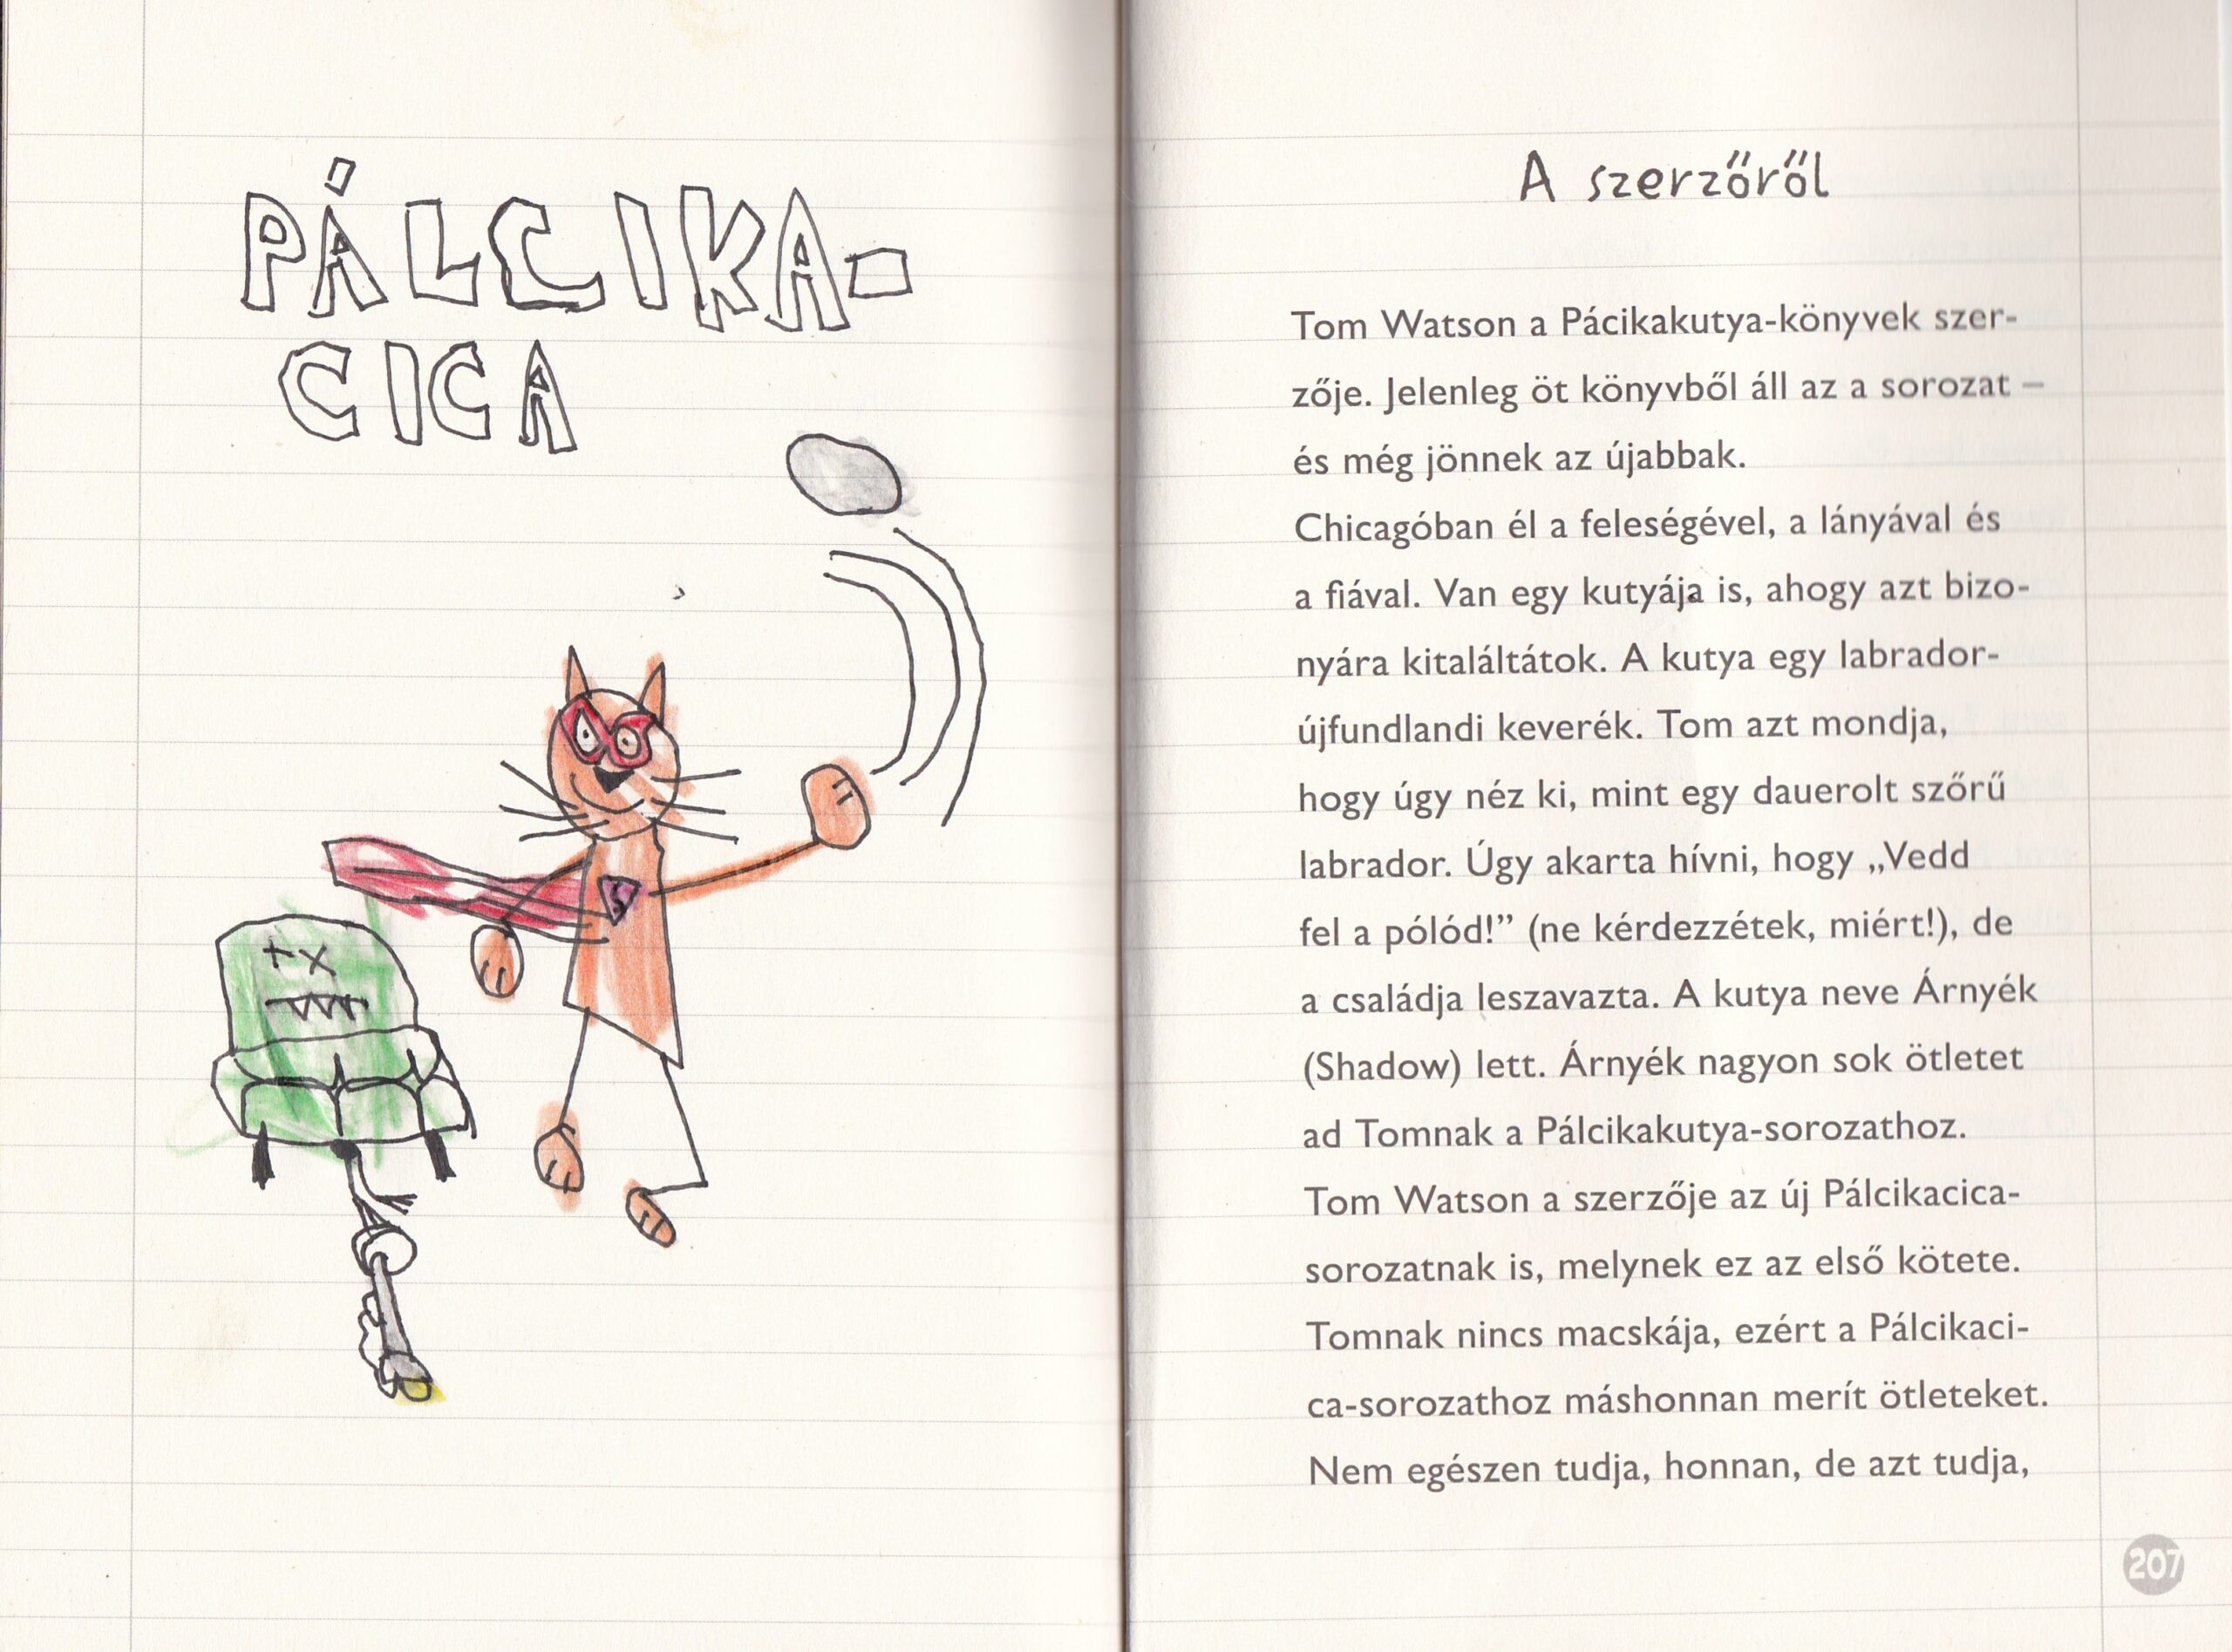 PÁLCIKA-
CICA
A szerzőről
Tom Watson a Pácikakutya-könyvek szer-
zője. Jelenleg öt könyvből áll az a sorozat –
és még jönnek az újabbak.
Chicagóban él a feleségével, a lányával és
a fiával. Van egy kutyája is, ahogy azt bizo-
nyára kitaláltátok. A kutya egy labrador-
újfundlandi keverék. Tom azt mondja,
hogy úgy néz ki, mint egy dauerolt szőrű
labrador. Úgy akarta hívni, hogy „Vedd
fel a pólód!” (ne kérdezzétek, miért!), de
a családja leszavazta. A kutya neve Árnyék
(Shadow) lett. Árnyék nagyon sok ötletet
ad Tomnak a Pálcikakutya-sorozathoz.
Tom Watson a szerzője az új Pálcikacica-
sorozatnak is, melynek ez az első kötete.
Tomnak nincs macskája, ezért a Pálcikaci-
ca-sorozathoz máshonnan merít ötleteket.
Nem egészen tudja, honnan, de azt tudja,
207